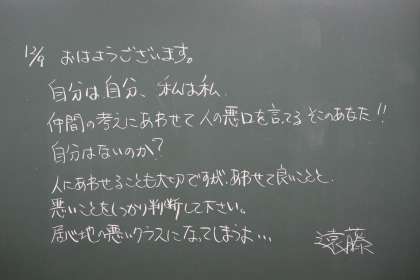 12/9 おはようございます。
自分は自分、私は私.
仲間の考えにあわせて人の悪口を言ってるそこのあなた!!
自分はないのか?
人にあわせることも大切ですが、あわせて良いことと、
悪いことをしっかり判断して下さい。
居心地の悪いクラスになってしまうよ…
遠藤